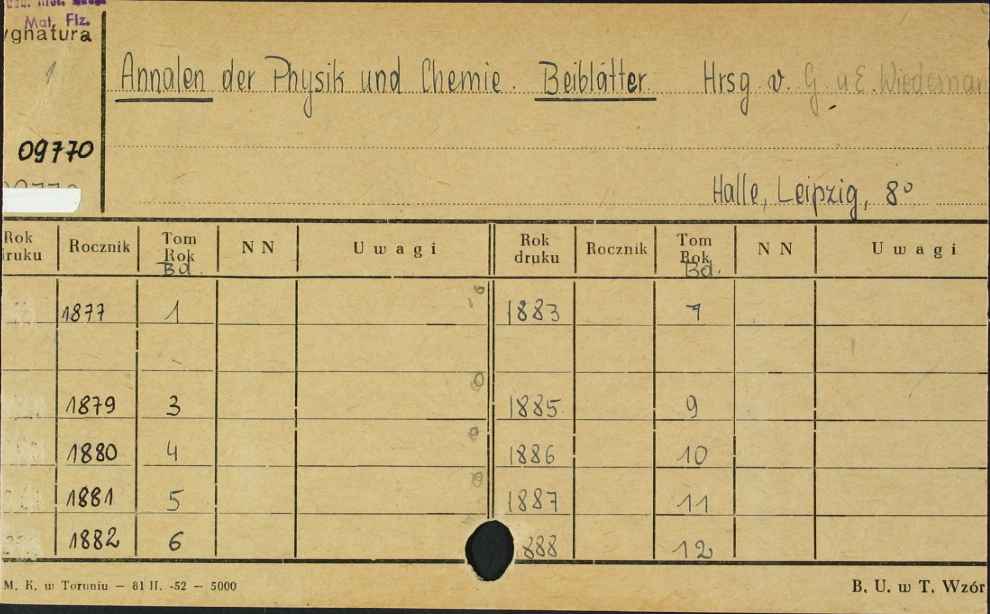 Mat. Flz.
ygnatura
1
Annalen der Physik und Chemie. Beiblätter. Hrsg v. G. u E. Wiedeman
09770
Halle, Leipzig, 8°
Rok druku Rocznik Tom Rok Bd. NN Uwagi Rok druku Rocznik Tom Rok Bd. NN Uwagi
1877 1 1883 7
1879 3 1885 9
1880 4 1886 10
1881 5 1887 11
1882 6 1888 12
M. K. w Toruniu — 81 II. -52 — 5000 B. U. w T. Wzór